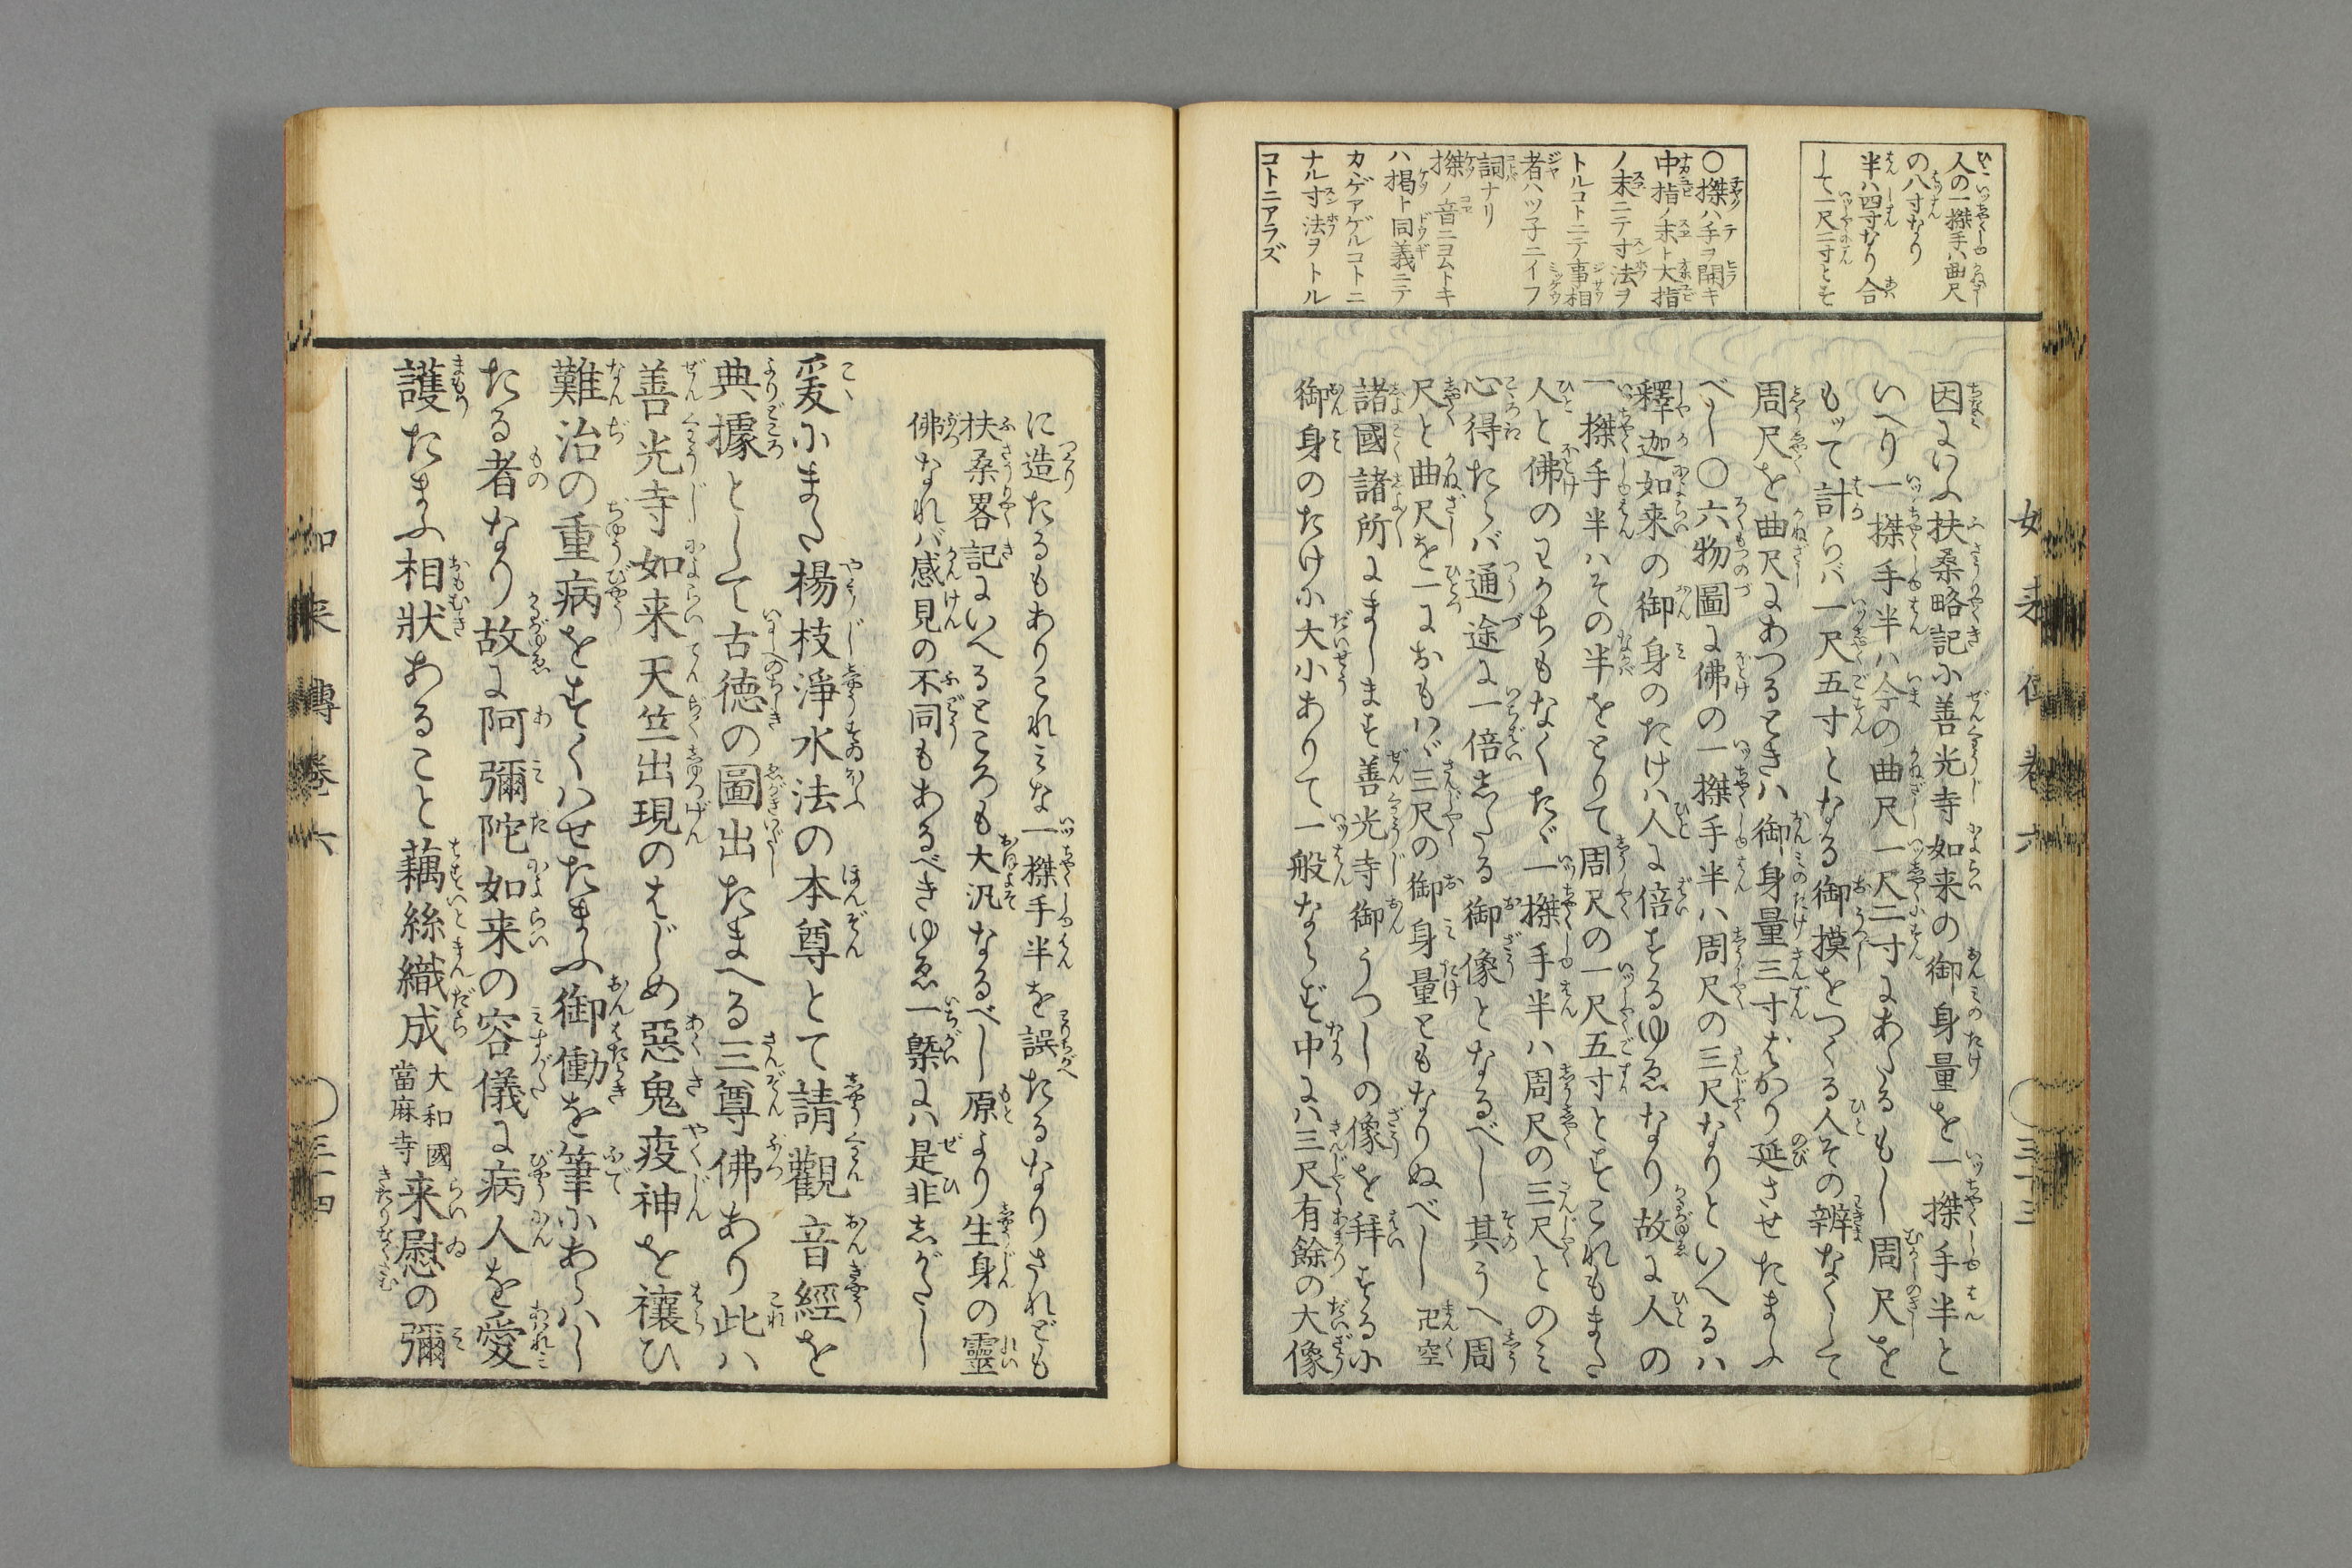 人の一搩手ハ曲尺
の八寸なり
半ハ四寸なり合
して一尺二寸とす
〇搩ハ手ヲ開キ
中指ノ末ト大指
ノ末ニテ寸法ヲ
トルコトニテ事相
者ハツ子ニイフ
詞ナリ
搩ノ音ニヨムトキ
ハ掲ト同義ニテ
カヽゲアゲルコトニ
ナル寸法ヲトル
コトニアラズ
因にいふ扶桑略記に善光寺如来の御身量を一搩手半と
いへり一搩手半ハ今の曲尺一尺二寸にあたるもし周尺を
もッて計らバ一尺五寸となる御摸をつくる人その辨なくして
周尺を曲尺にあつるときハ御身量三寸ばかり延させたまふ
べし〇六物圖に佛の一搩手半ハ周尺の三尺なりといへるハ
釋迦如来の御身のたけハ人に倍するゆゑなり故に人の
一搩手半ハその半をとりて周尺の一尺五寸とすこれもまた
人と佛のわかちもなくたゞ一搩手半ハ周尺の三尺とのミ
心得たらバ通途に一倍したる御像となるべし其うへ周
尺と曲尺を一におもハゞ三尺の御身量ともなりぬべし卍空
諸國諸所にまします善光寺御うつしの像を拜するに
御身のたけに大小ありて一般ならず中にハ三尺有餘の大像
如来傳卷六
三十三
に造たるもありこれミな一搩手半を誤たるなりされども
扶桑畧記にいへるところも大汎なるべし原より生身の靈
佛なれバ感見の不同もあるべきゆゑ一槩にハ是非しがたし
爰にまた楊枝淨水法の本尊とて請觀音經を
典據として古徳の圖出たまへる三尊佛あり此ハ
善光寺如来天竺出現のはじめ惡鬼疫神を禳ひ
難治の重病をすくハせたまふ御働を筆にあらハし
たる者なり故に阿彌陀如来の容儀に病人を愛
護たまふ相狀あること藕絲織成大和國當麻寺来慰の彌
如来傳卷六
三十四